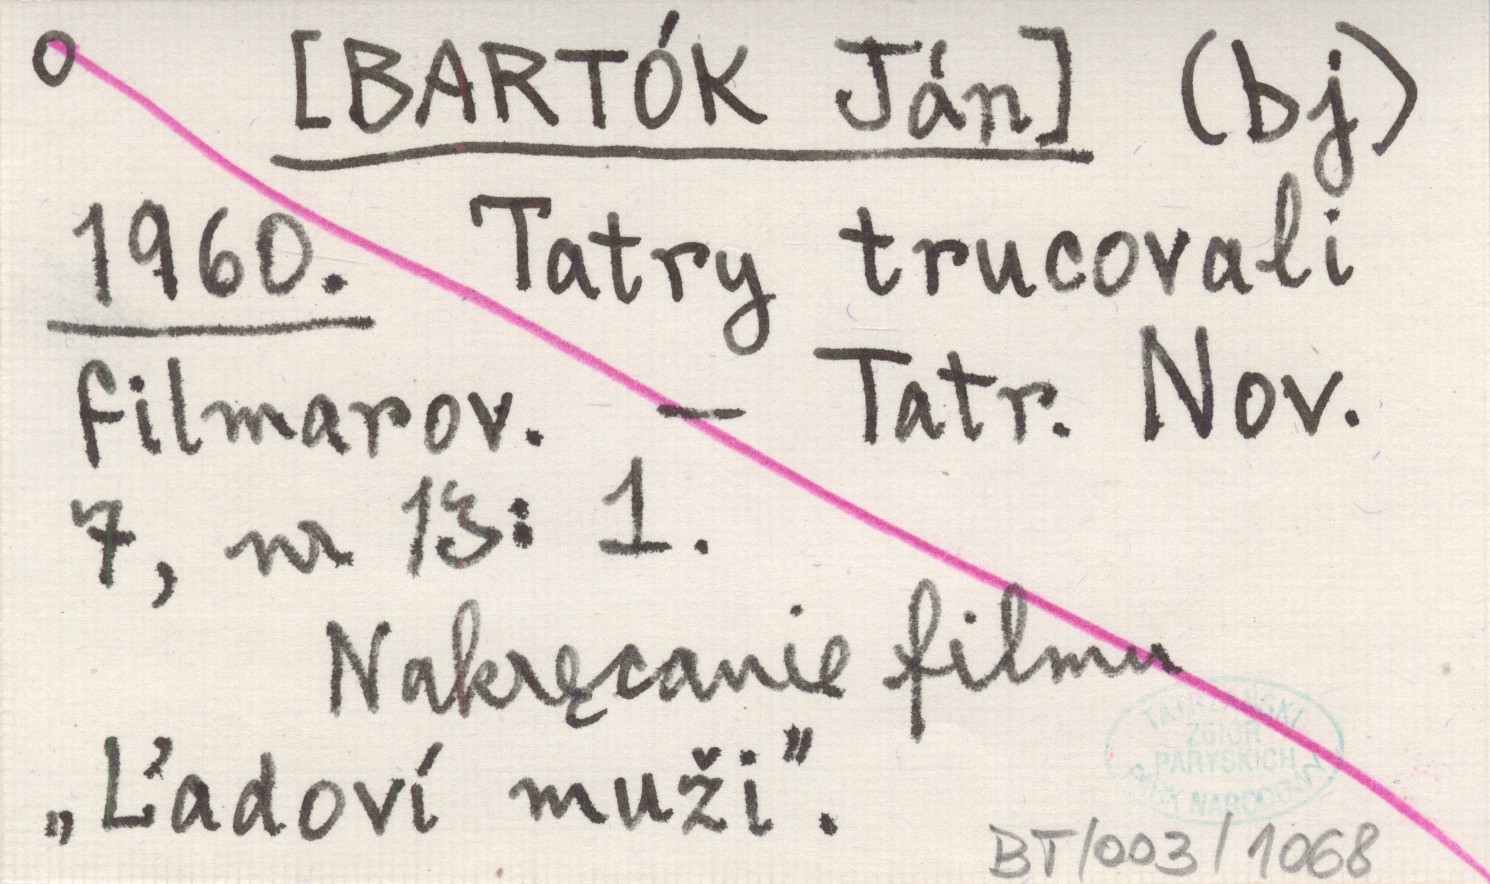 [BARTÓK Ján] (bj)
1960. Tatry trucovali
filmarov. — Tatr. Nov.
7, nr 13: 1.
Nakręcanie filmu
„Ľadoví muži”.
TATRZAŃSKI
ZBIÓR
PARYSKICH
NARODOWY
BT/003/1068